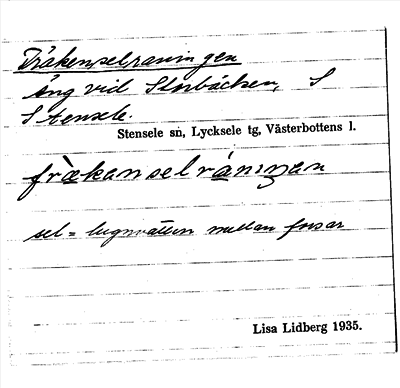 Fräkenselråningen
äng vid Storbäcken, S
Stensele.
Stensele sn, Lycksele tg, Västerbottens l.
fræ̀kanselrå̀niŋen
sel = lugnvatten mellan forsar
Lisa Lidberg 1935.